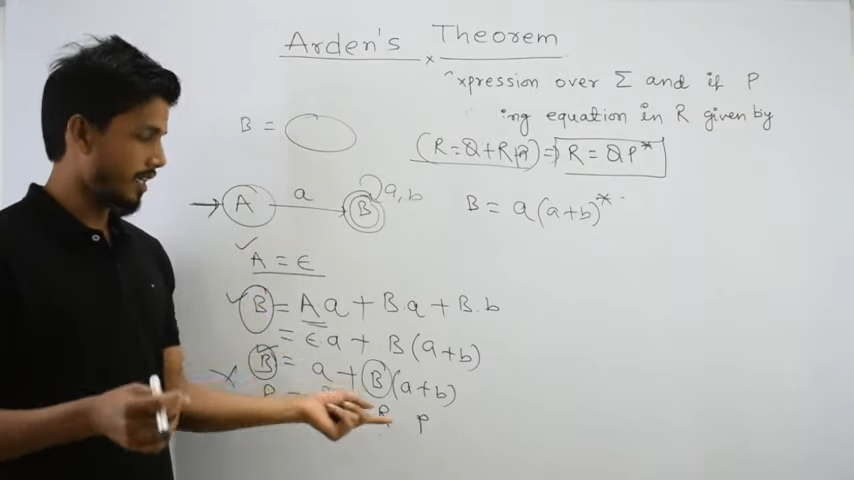 Arden's Theorem
xpression over Σ and if P
ing equation in R given by
B =
(R=Q+RP) ⇒ R = QP*
A a B a,b
B = a(a+b)*
A = ε
B = A.a + B.a + B.b
= ε.a + B(a+b)
B = a + B(a+b)
R P